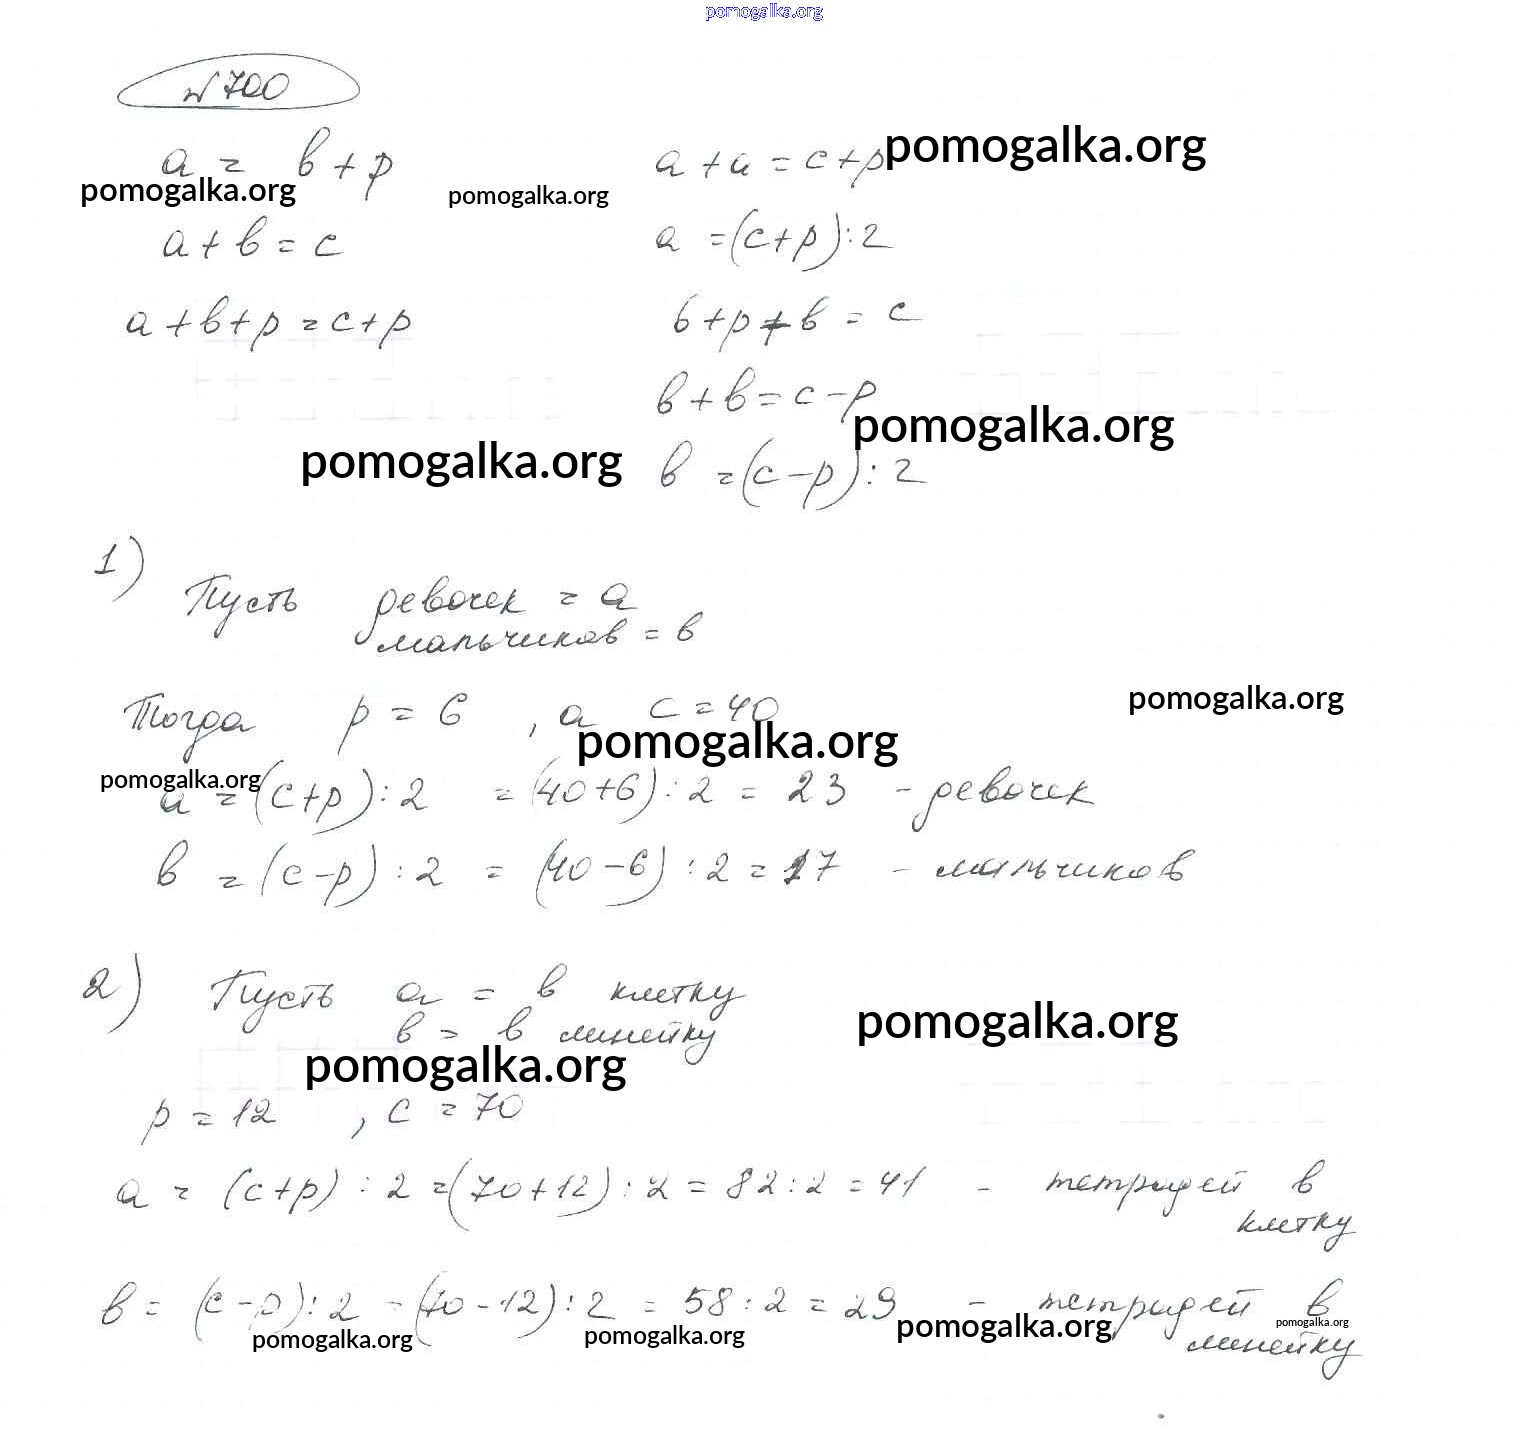 pomogalka.org
№700
a = в + p
a + a = c + p pomogalka.org
pomogalka.org
pomogalka.org
a + в = c
a = (c + p) : 2
a + в + p = c + p
в + p + в = c
в + в = c - p
pomogalka.org
pomogalka.org
в = (c - p) : 2
1)
Пусть девочек = a
мальчиков = в
Тогда p = 6 , а c = 40
pomogalka.org
pomogalka.org
pomogalka.org
a = (c + p) : 2 = (40 + 6) : 2 = 23 - девочек
в = (c - p) : 2 = (40 - 6) : 2 = 17 - мальчиков
2) Пусть a = в клетку
в = в линейку
pomogalka.org
pomogalka.org
p = 12 , c = 70
a = (c + p) : 2 = (70 + 12) : 2 = 82 : 2 = 41 - тетрадей в
клетку
в = (c - p) : 2 = (70 - 12) : 2 = 58 : 2 = 29 - тетрадей в
линейку
pomogalka.org
pomogalka.org
pomogalka.org
pomogalka.org